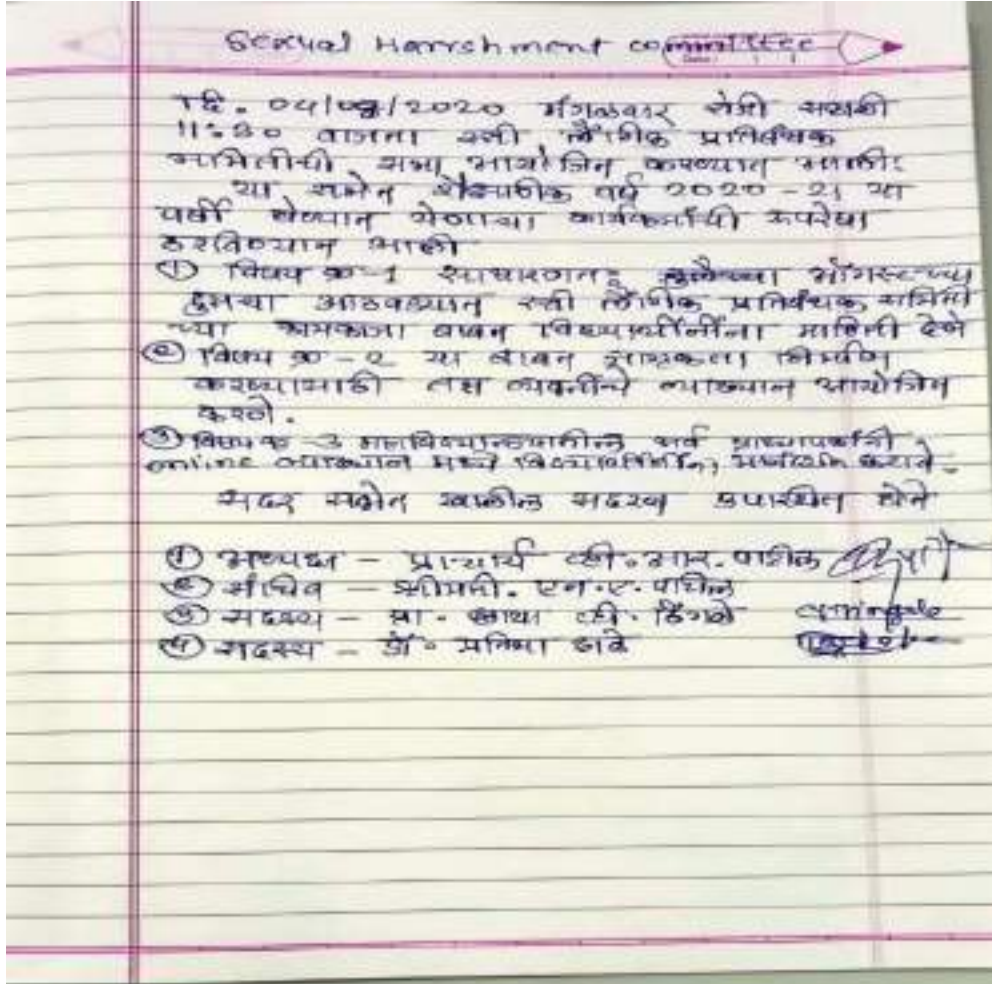 Sexual Harrshment committee
दि. 04/08/2020 मंगळवार रोजी सकाळी
11:30 वाजता स्त्री लैंगीक प्रतिबंधक
समितीची सभा आयोजित करण्यात आली.
या सभेत शैक्षणीक वर्ष 2020-21 या
वर्षी घेण्यात येणाऱ्या कार्यक्रमांची रूपरेषा
ठरविण्यात आली
① विषय क्र-1 साधारणतः ऑगस्टच्या
दुसऱ्या आठवड्यात स्त्री लैंगीक प्रतिबंधक समिती
च्या कामकाजा बाबत विद्यार्थीनींना माहिती देणे
② विषय क्र-२ या बाबत जागृकता निर्माण
करण्यासाठी तज्ञ व्यक्तींचे व्याख्यान आयोजित
करणे.
③ विषय क्र-3 महाविद्यालयातील सर्व प्राध्यापकांनी
online व्याख्यान मध्ये विद्यार्थीनींना मार्गदर्शन करावे.
सदर सभेत खालील सदस्य उपास्थित होते
① अध्यक्ष - प्राचार्य व्ही. आर. पाटील
② सचिव - श्रीमती. एन. ए. पाटील
③ सदस्य - प्रा. छाया व्ही. हिंगले
④ सदस्य - डॉ. प्रतिभा ढाके